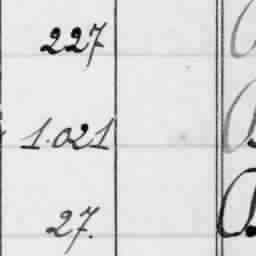 227
1.021
27.